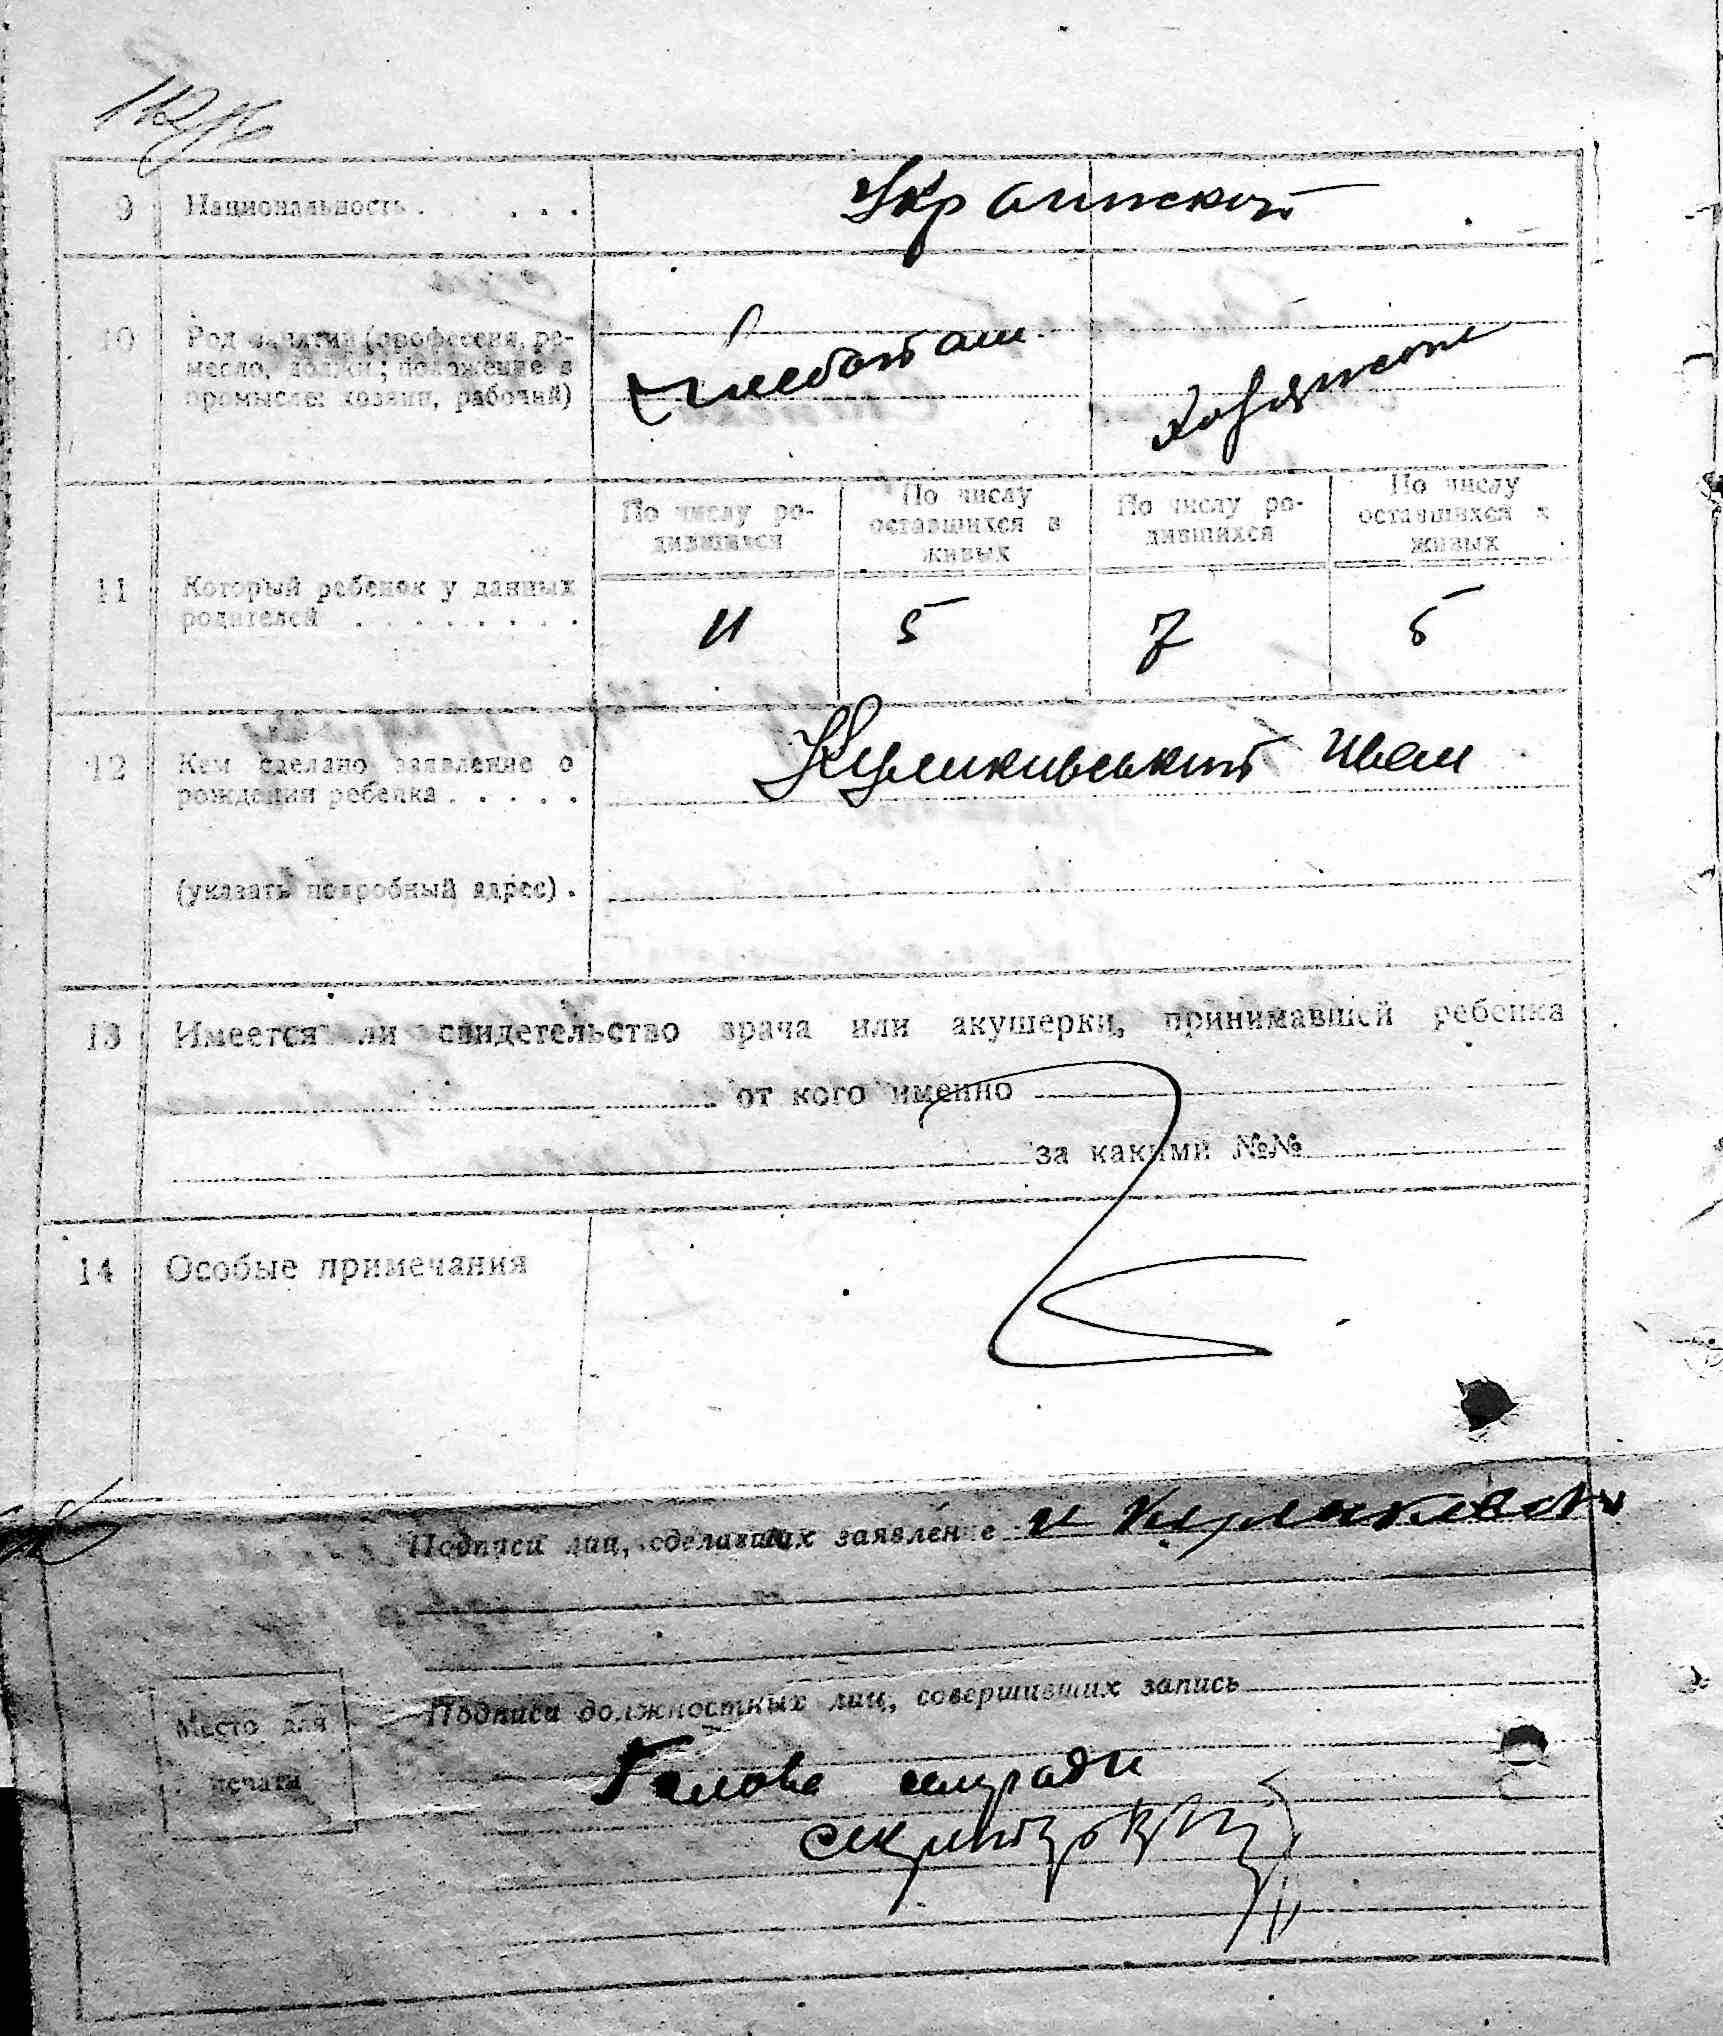 9 Национальность . . . . . .
Украинской
10 Род занятия (профессия, ре-
месло, должн; положение в
промысле: хозяин, рабочий)
Хлебопаш.
11 Который ребенок у данных
родителей . . . . . . . .
По числу ро-
дившихся
По числу
оставшихся в
живых
По числу ро-
дившихся
По числу
оставшихся в
живых
11 5 7 5
12 Кем сделано заявление о
рождении ребенка . . . . .
Куликивський Иван
(указать подробный адрес) .
13 Имеется ли свидетельство врача или акушерки, принимавшей ребенка
от кого именно
за какими №№
14 Особые примечания
Подписи лиц, сделавших заявление и
Место для
печати
Подписи должностных лиц, совершивших запись
Голова сельради